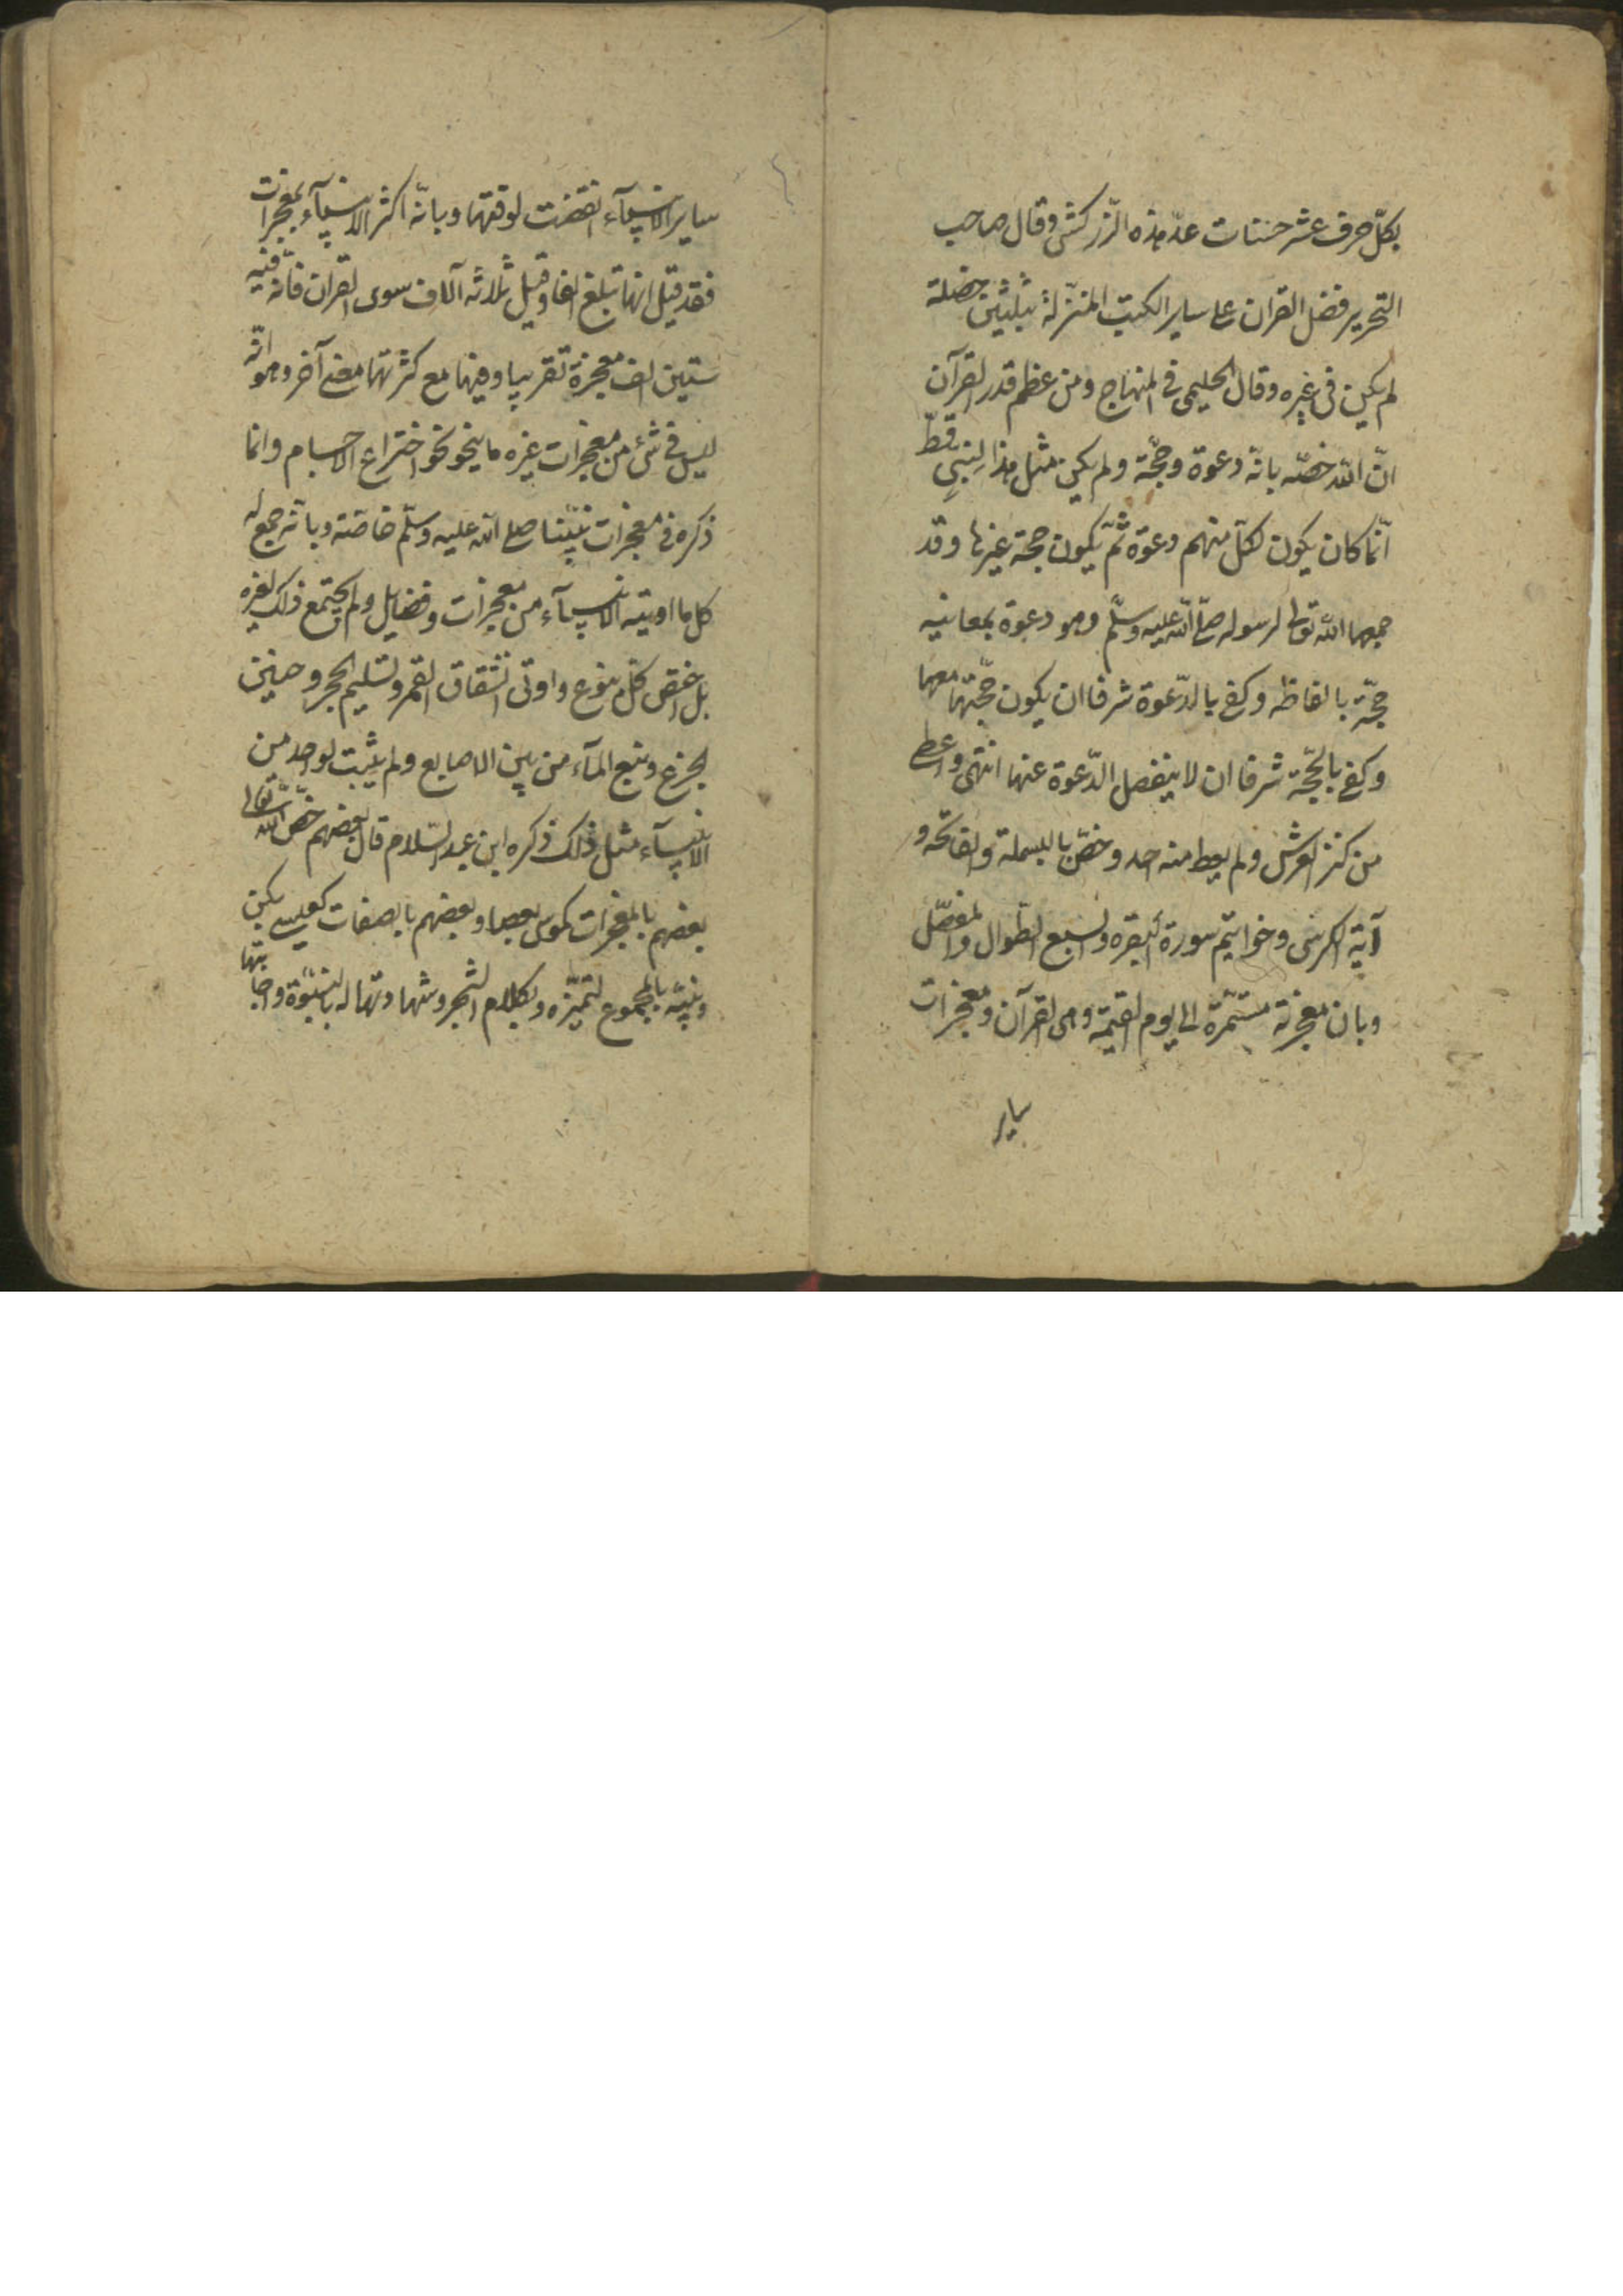 بكلّ حرف عشر حسنات عدّ هذه الزّركشى وقال صاحب
التحرير فضل القران على ساير الكتب المنزّلة بثلثين خصلة
لم يكن فى غيره وقال الحليمى فى المنهاج ومن عظم قدر القرآن
انّ الله خصّه بانّه دعوة وحجّة ولم يكن مثل هذا لنبىٍ قطّ
انّما كان يكون لكلّ منهم دعوة ثمّ يكون حجة غيرها وقد
جمعهما الله تعالى لرسوله صلّى الله عليه وسلّم وهو دعوة بمعانيه
حجّة بالفاظه وكفى بالدّعوة شرفا ان يكون حجّتها معها
وكفى بالحجّة شرفا ان لا ينفصل الدّعوة عنها انتهى واعطى
من كنز العرش ولم يعط منه احد وخصّ بالبسملة والفاتحه و
آية الكرسى وخواتيم سورة البقره والسبع الطّوال والمفصّل
وبان معجزته مستمّرة الى يوم القيمة وهى القرآن ومعجزات
ساير
ساير الانبيآء انقضت لوقتها وبانّه اكثر الانبيآء معجزات
فقد قيل انها تبلغ الفا وقيل ثلاثه آلاف سوى القران فانّ فيه
ستين الف معجزة تقريبا وفيها مع كثرتها معنى آخر وهو انّه
ليس فى شئ من معجزات غيره ما ينحو نحو اختراع الاجسام وانما
ذكره فى معجزات نبيّنا صلى الله عليه وسلّم خاصّة وبانّه جمع له
كل ما اوتيته الانبيآء من معجزات وفضايل ولم يجتمع ذلك لغيره
بل اختص كلّ بنوع واوتى انشقاق القمر وتسليم الحجر وحنين
الجزع ونبع المآء من بين الاصابع ولم يثبت لواحد من
الانبيآء مثل ذلك ذكره ابن عبد السّلام قال بعضهم خصّ الله تعالى
بعضهم بالمعجزات كموسى بعصا وبعضهم بالصفات كعيسى
ونبيّه بالمجموع لتميّزه وبكلام الشجر وشهادتها له بالنبوّة واجابتها